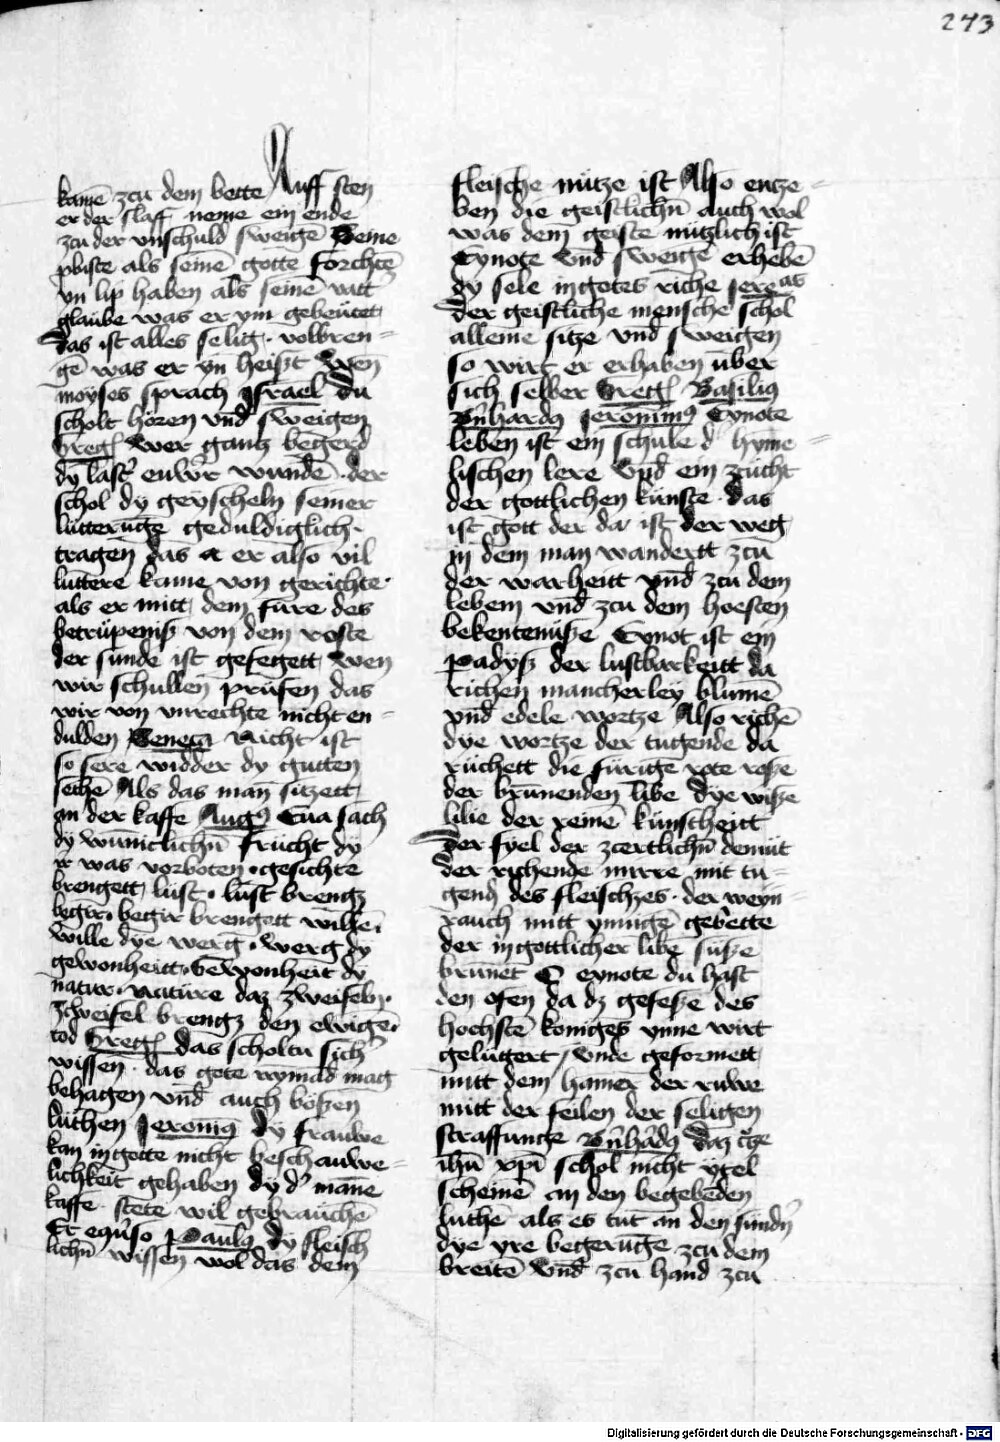 243
kamē zcu dem bette Auff sten
er der slaff neme ein ende
zcu der vnschuld sweige Seine
pbiste als seinē gotte forchtē
yn lip haben als seinē vatt'
glaube was er ym gebeutet
das ist alles selig. volbren=
gē was er yn heißt Wen
moyses sprach Israel Du
scholt hören vnd sweigen
Greg' wer gantz begerd
dy last' euw'r wunde der
schol dy geyscheln seiner
lütterūge geduldiglich
tragen das er also vil
luttere kame von gerichte.
als er mitt dem füre des
betrüpeniß von dem roste
der sunde ist gefegett Wen
wir schullen prüfen das
wir von vnrechte nicht en=
dulden Seneca Nicht ist
so sere widder dy gutten
setēē Als das man sitzett
an der kaffe Aug9 Eua sach
dy wūniclichn̄ frücht dy
ir was vorboten. gesichte
brengett lust. lust brengt
begir. begir brengett willē.
wille dye werg. werg dy
gewonheitt. Gewonheit dy
natur. Nature daz zweifeln.
Zcweifel brengt den ewigē
tod Greg' das scholtu sich'
wissen. das gote nymād mag
behagen vnd auch bößen
lüthen Jeronim9 Dy frauwe
kan in gotte nicht beschauwe=
lichkeit gehaben dy d' mane
kaffe stete wil gebrauchē
Et equ'so Paul9 Dy fleisch
lichn̄ wissen wol das dem
fleische nütze ist Also entze=
ben die geistlichn̄ auch wol
was dem geiste nützlich ist
Eynote vnd sweigē erhebē
dy sele in gotes riche Jereas
Der geistliche mensche schol
alleine sitze vnd sweigen
so wirt er erhaben über
sich selber Greg' Basilius
B'nhard9 Jeronim9 Eynote
leben ist ein schule d' hyme=
lischen lere vnd ein zcucht
der gottlichen künste. das
ist gott der da ist der weg
in dem man wandertt zcu
der warheitt vnd zcu dem
lebem vnd zcu dem hoesten
bekentenüße Eynot ist ein
Padyß der lustbarkeitt da
richen mancherley blumē
vnd edele wortze Also richē
dye wortze der tugende da
rüchett die fürige rote roße
der brūnenden libe dye wiße
lilie der reine künscheitt
Der fyel der zcertlichn̄ demüt
der richende mirre mit tu=
gend des fleischzes. der weyn=
rauch mitt ynnigē gebette
der in gottlicher libe süße
brūnet O eynote du hast
den ofen da dz gefeße des
hochstē koniges ynne wirt
gelüttert / vnde geformett
mitt dem hamer der ruwe
mitt der feilen der seligen
straffunge B'nhad9 Daz
ihū xp̄i schol nicht ytel
scheinē an den begebeden
luthē als es tut an den sūdn'
dye yre begerūge zcu dem
breitē vnd zcu hand zcu
Digitalisierung gefördert durch die Deutsche Forschungsgemeinschaft - DFG